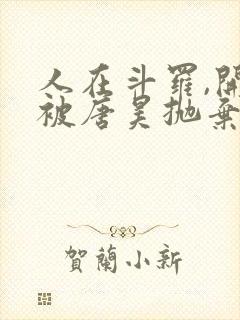 人在斗羅,開
被唐昊拋棄
賀蘭小新